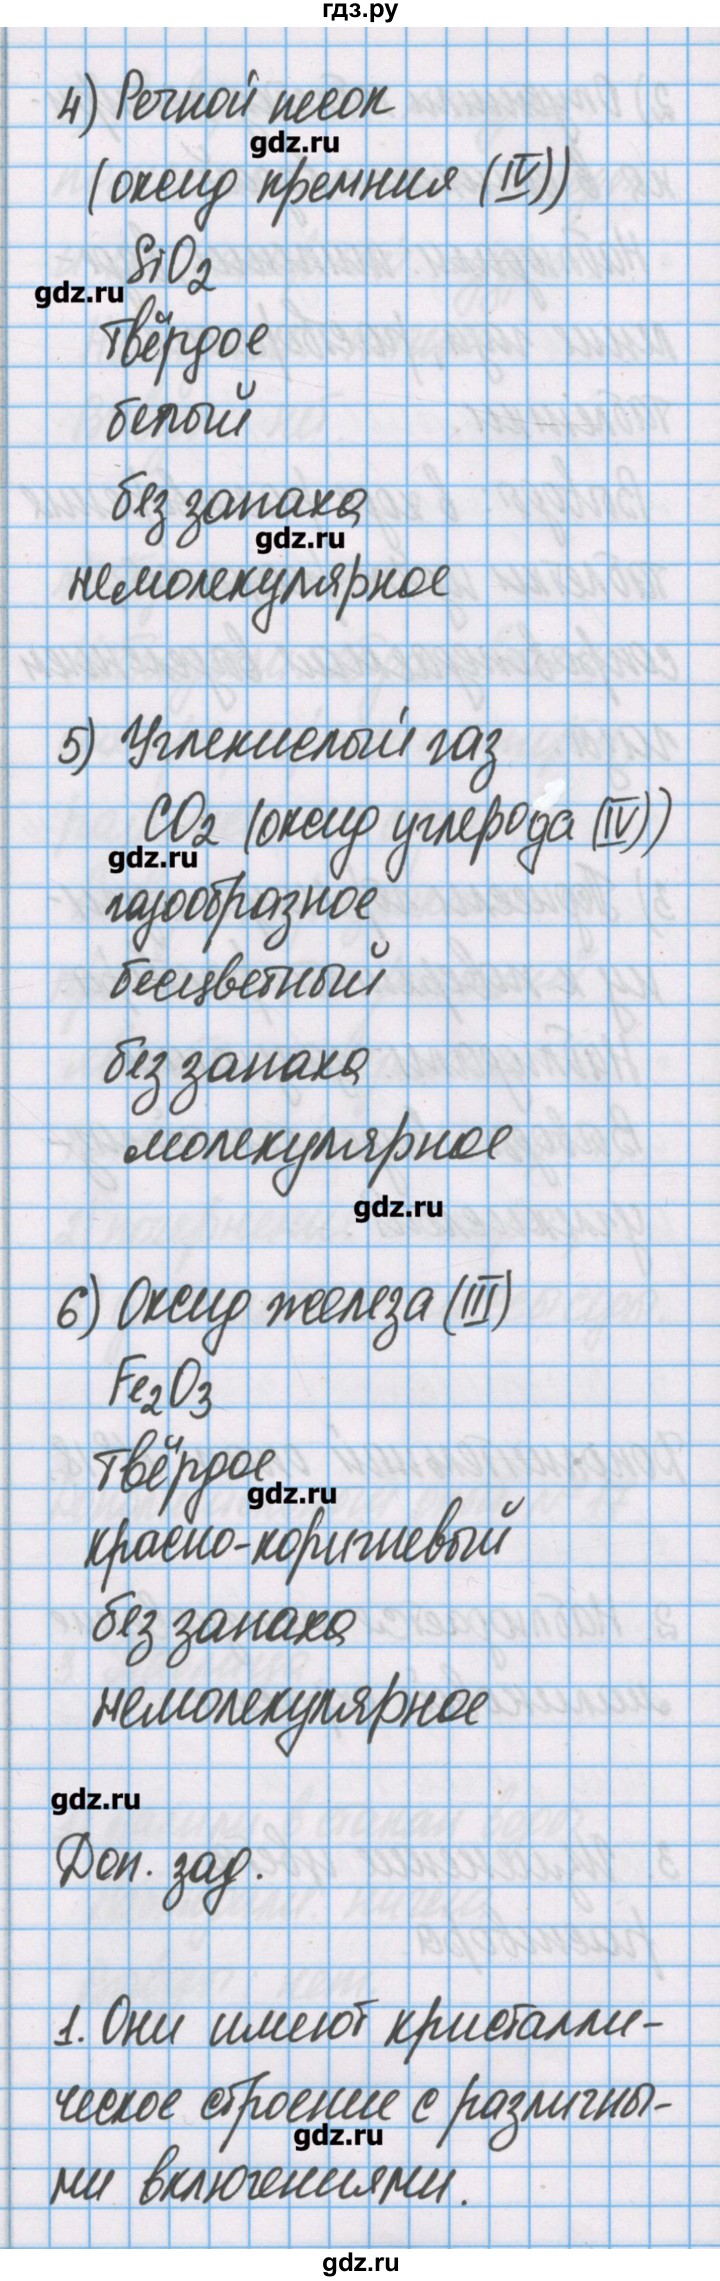 гдз.ру
4) Речной песок
gdz.ru
(оксид кремния (IV))
SiO2
gdz.ru
твёрдое
белый
без запаха
gdz.ru
немолекулярное
5) Углекислый газ
CO2 (оксид углерода (IV))
gdz.ru
газообразное
бесцветный
без запаха
молекулярное
gdz.ru
6) Оксид железа (III)
Fe2O3
твёрдое
gdz.ru
красно-коричневый
без запаха
немолекулярное
gdz.ru
Доп. зад.
1. Они имеют кристалли-
ческое строение с различны-
gdz.ru
ми включениями.
gdz.ru